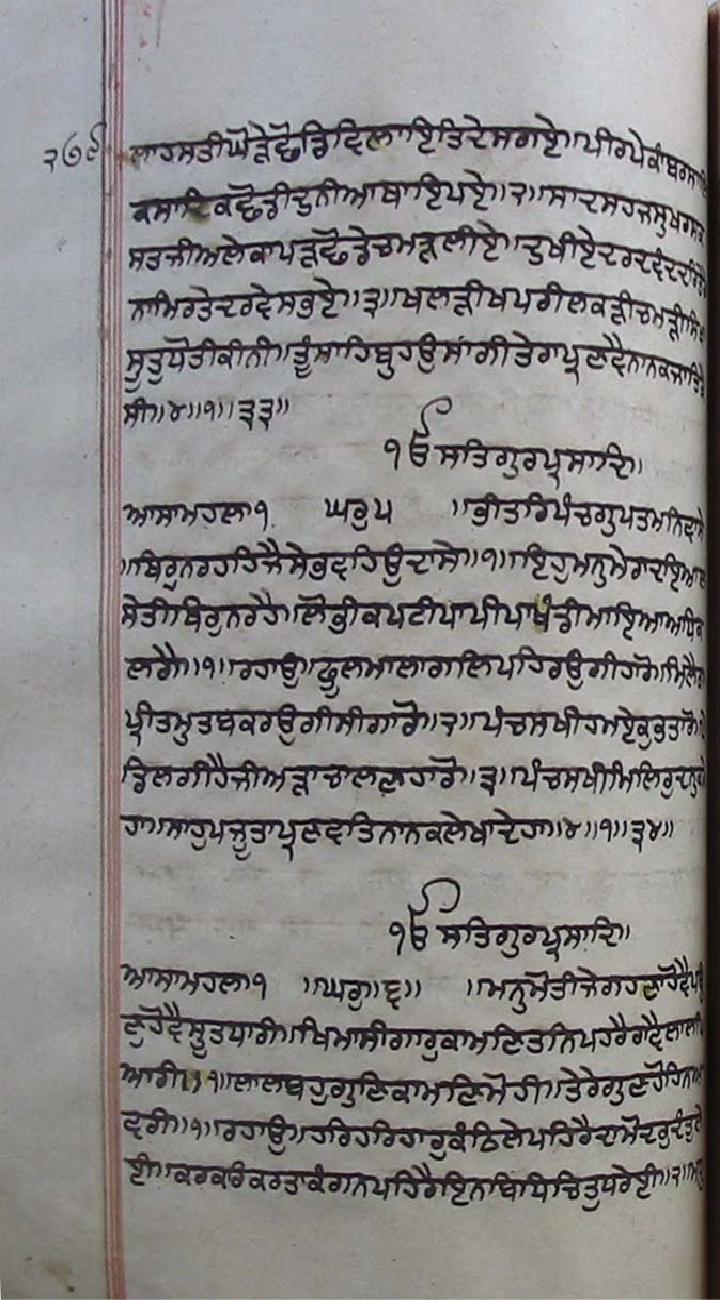 ੨੭੬ ਲਾਹਸਤੀਘੋੜੇਛੋਡਿਵਿਲਾਇਤਿਦੇਸਗਏ॥ਪੀਰਪੇਕਾਂਬਰਸਾਲਿ
ਕਸਾਦਿਕਛੋਡੀਦੁਨੀਆਥਾਇਪਏ॥੨॥ਸਾਦਸਹਜਸੁਖਰਸਕ
ਸਤਜੀਅਲੇਕਾਪੜਛੋਡੇਚਮੜਲੀਏ॥ਦੁਖੀਏਦਰਦਵੰਦਦਰਿਤੇਰੈ
ਨਾਮਿਰਤੇਦਰਵੇਸਭਏ॥੩॥ਖਲੜੀਖਪਰੀਲਕੜੀਚਮੜੀਸਿਖਾ
ਸੂਤੁਧੋਤੀਕੀਨੀ॥ਤੂੰਸਾਹਿਬੁਹਉਸਾਂਗੀਤੇਰਾਪ੍ਰਣਵੈਨਾਨਕਜਾਤਿਕੈ
ਸੀ॥੪॥੧॥੩੩॥
ੴਸਤਿਗੁਰਪ੍ਰਸਾਦਿ॥
ਆਸਾਮਹਲਾ੧ ਘਰੁ੫ ॥ਭੀਤਰਿਪੰਚਗੁਪਤਮਨਿਵਾਸੇ
॥ਥਿਰੁਨਰਹਹਿਜੈਸੇਭਵਹਿਉਦਾਸੇ॥੧॥ਇਹੁਮਨੁਮੇਰਾਦਇਆਲ
ਸੇਤੀਥਿਰੁਨਰਹੈ॥ਲੋਭੀਕਪਟੀਪਾਪੀਪਾਖੰਡੀਮਾਇਆਅਧਿਕ
ਲਗੈ॥੧॥ਰਹਾਉ॥ਫੂਲਮਾਲਾਗਲਿਪਹਿਰਉਗੀਹਾਰੋ॥ਮਿਲੈਗਾ
ਪ੍ਰੀਤਮੁਤਬਕਰਉਗੀਸੀਗਾਰੋ॥੨॥ਪੰਚਸਖੀਹਮਏਕੁਭਤਾਰੋ॥ਪੇ
ਡਿਲਗੀਹੈਜੀਅੜਾਚਾਲਣਹਾਰੋ॥੩॥ਪੰਚਸਖੀਮਿਲਿਰੁਦਨੁਕਰੇ
ਹਾ॥ਸਾਹੁਪਜੂਤਾਪ੍ਰਣਵਤਿਨਾਨਕਲੇਖਾਦੇਹਾ॥੪॥੧॥੩੪॥
ੴਸਤਿਗੁਰਪ੍ਰਸਾਦਿ॥
ਆਸਾਮਹਲਾ੧ ॥ਘਰੁ॥੬॥ ॥ਮਨੁਮੋਤੀਜੇਗਹਣਾਹੋਵੈਪਉ
ਣੁਹੋਵੈਸੂਤਧਾਰੀ॥ਖਿਮਾਸੀਗਾਰੁਕਾਮਣਿਤਨਿਪਹਰੈਰਾਵੈਲਾਲਪਿ
ਆਰੀ॥੧॥ਲਾਲਬਹੁਗੁਣਿਕਾਮਣਿਮੋਹੀ॥ਤੇਰੇਗੁਣਹੋਹਿਨਅ
ਵਰੀ॥੧॥ਰਹਾਉ॥ਹਰਿਹਰਿਹਾਰੁਕੰਠਿਲੇਪਹਿਰੈਦਾਮੋਦਰੁਦੰਤੁਲੇ
ਈ॥ਕਰਕਰਿਕਰਤਾਕੰਗਨਪਹਿਰੈਇਨਬਿਧਿਚਿਤੁਧਰੇਈ॥੨॥ਮਧੁ